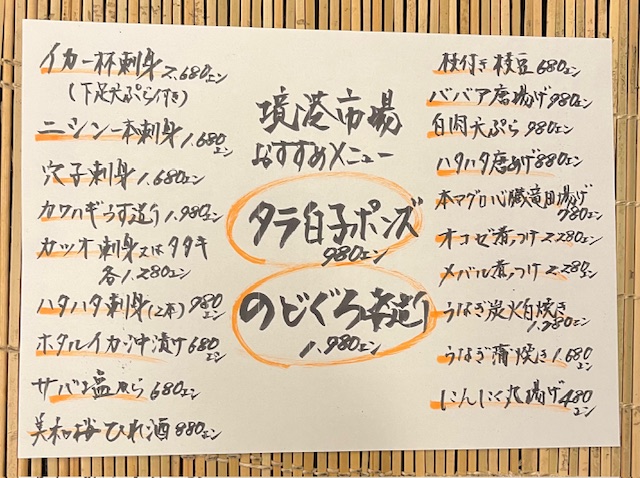 イカ一杯刺身 2.680エン
(下足天ぷら付き)
ニシン一本刺身 1.680エン
穴子刺身 1.680エン
カワハギうす造り 1.980エン
カツオ刺身又はタタキ
各1.280エン
ハタハタ刺身(2本) 980エン
ホタルイカ沖漬け 680エン
サバ塩から 680エン
美和桜ひれ酒 880エン
境港市場
おすすめメニュー
タラ白子ポンズ
980エン
のどぐろ姿造り
1.980エン
枝付き枝豆 680エン
ババア唐揚げ 980エン
白肉天ぷら 980エン
ハタハタ唐あげ 880エン
本マグロ心臓竜田揚げ
780エン
オコゼ煮つけ 2.280エン
メバル煮つけ 2.280エン
うなぎ炭火白焼き
1.780エン
うなぎ蒲焼き 1.680エン
にんにく丸揚げ 480エン